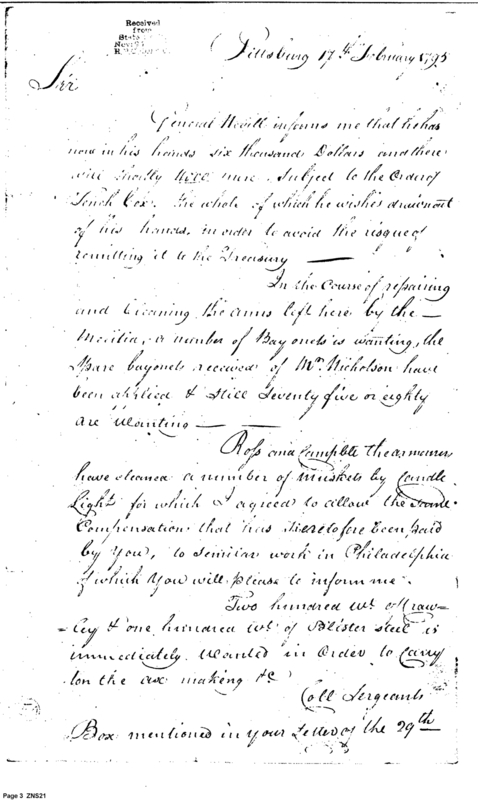 Received
from
State
Pittsburg 17th February 1795
Sir
General Nevill informs me that he has
now in his hands six thousand Dollars and there
will shortly be more subject to the Order of
Tench Cox. The whole of which he wishes drawn out
of his hands, in order to avoid the risque of
remitting it to the Treasury —
In the Course of repairing
and Cleaning the arms left here by the —
Mecilia, a number of Bayonets is wanting, the
Spare bayonets received of Mr. Nicholson have
been applied & still Seventy five or eighty
are Wanting — —
Ross and Camplte the armorers
have cleaned a number of muskets by Candle
Light for which I agreed to allow the same
Compensation that has heretofore been paid
by You, to semilar work in Philadelphia
of which You will please to inform me.
Two hundred wt. of Craw-
-ley & one hundred wt. of Blister steel is
immediately Wanted in Order to Carry
on the axe making &c
Coll Sergeants
Box mentioned in your Letter of the 29th
Page 3 ZNS21